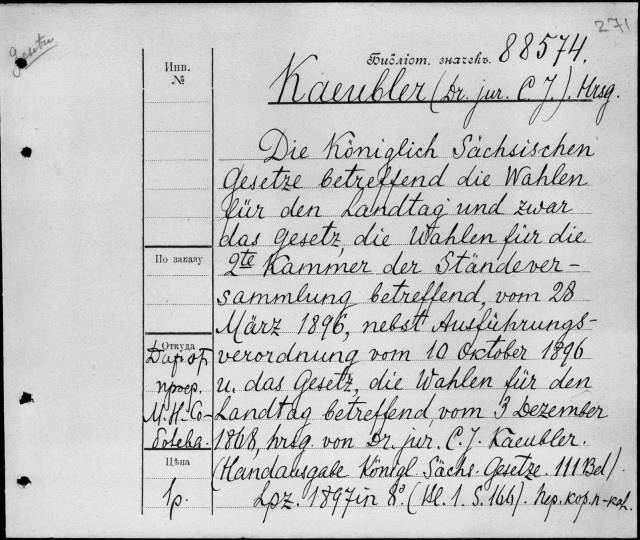 271
gesetze
Библіот. значекъ. 88574.
Инв.
№
Kaeubler (Dr. jur. C. J.). Hrsg.
Die Königlich Sächsischen
Gesetze betreffend die Wahlen
für den Landtag und zwar
das Gesetz, die Wahlen für die
По заказу
2te Kammer der Ständever-
sammlung betreffend, vom 28
März 1896, nebst Ausführungs-
Откуда
Дар от
проф.
М. Н. Со-
болева.
verordnung vom 10 Oktober 1896
u. das Gesetz, die Wahlen für den
Landtag betreffend, vom 3 Dezember
1868, hrsg. von Dr. jur. C. J. Kaeubler.
Цѣна
1р.
(Handausgabe Königl. Sächs. Gesetze. III Bd).
Lpz. 1897 in 8° (Kl. 1. S. 166). пер. кор. п-кол.